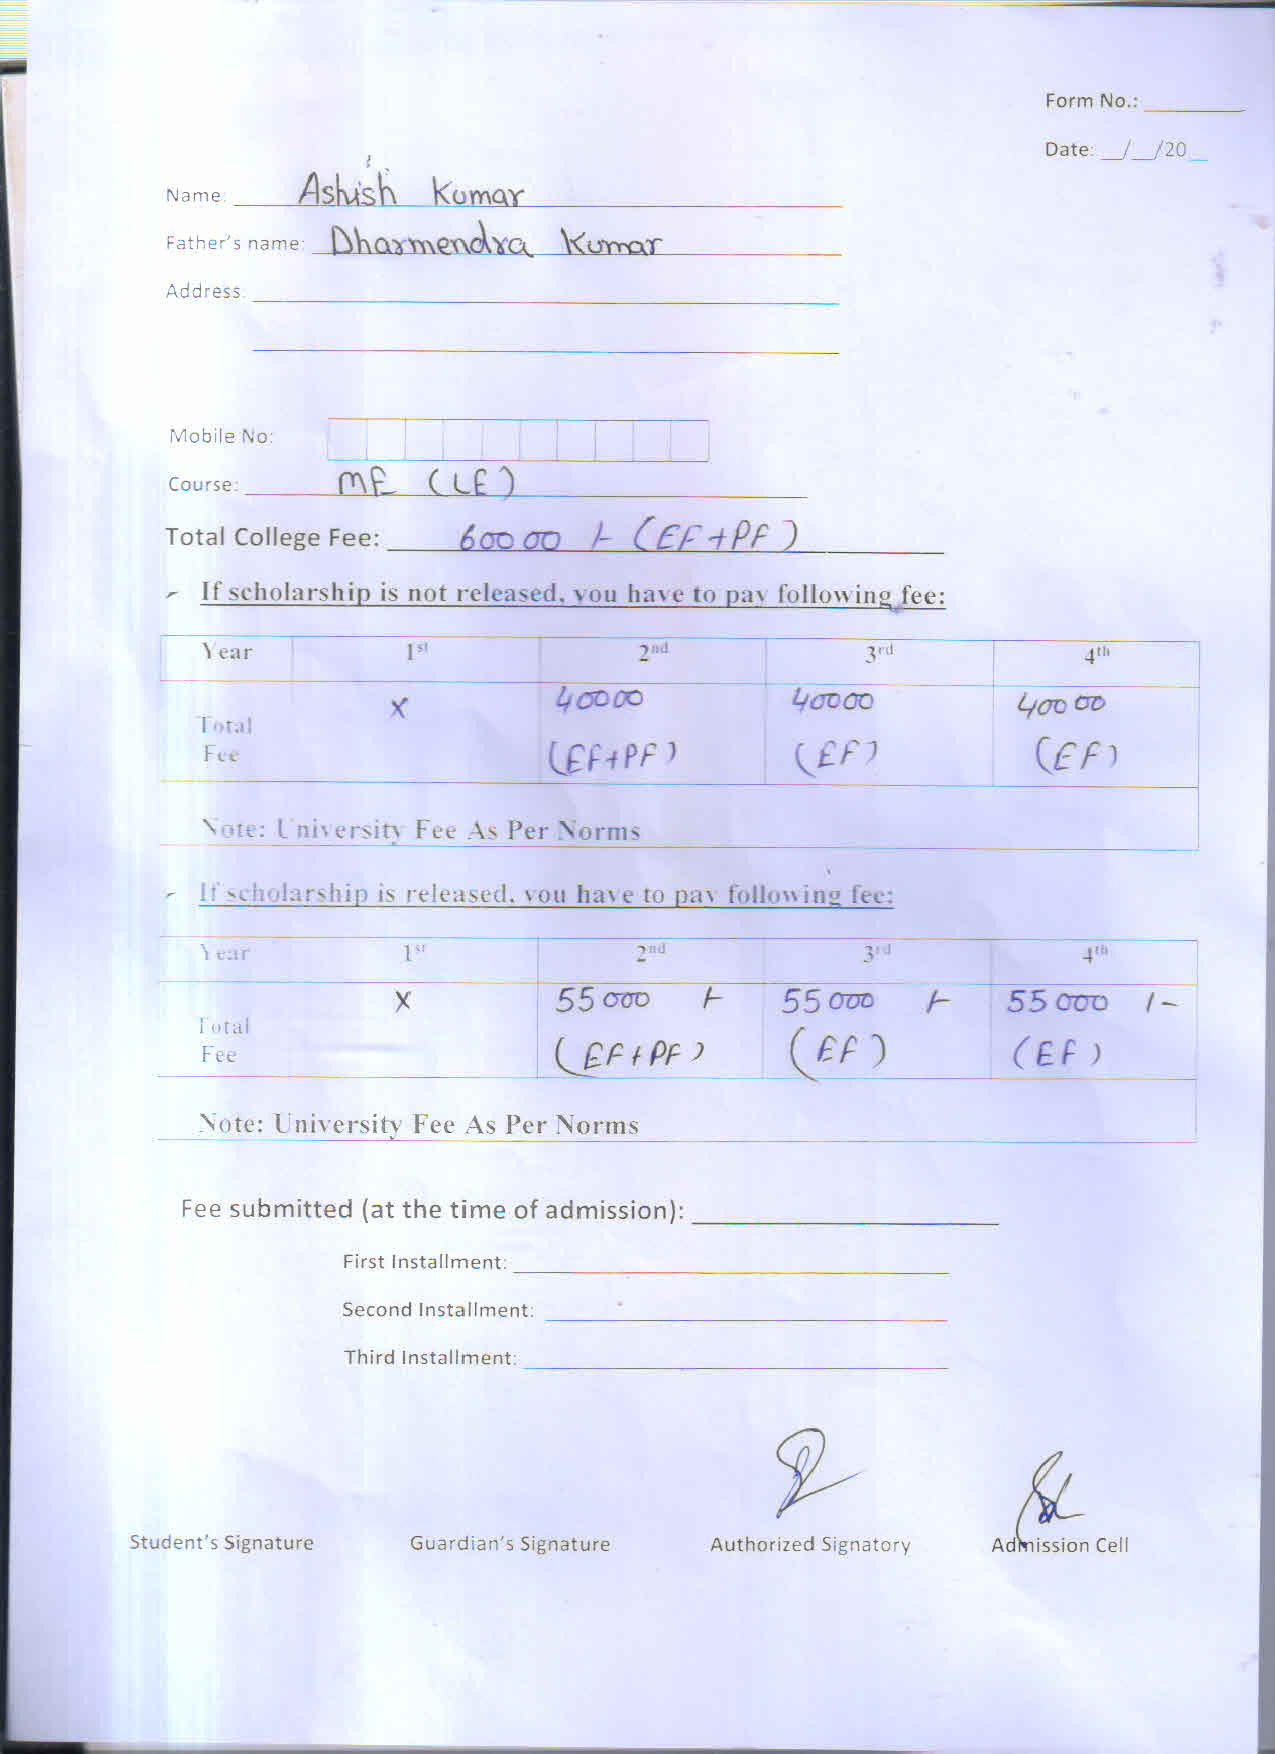 Form No.: 
Date: __/__/20__
Name: Ashish Kumar
Father's name: Dharmendra Kumar
Address:
Mobile No:
Course: ME (LE)
Total College Fee: 60000 /- (EF+PF)
- If scholarship is not released, you have to pay following fee:
Year 1st 2nd 3rd 4th
Total Fee X 40000 (EF+PF) 40000 (EF) 40000 (EF)
Note: University Fee As Per Norms
- If scholarship is released, you have to pay following fee:
Year 1st 2nd 3rd 4th
Total Fee X 55000 /- (EF+PF) 55000 /- (EF) 55000 /- (EF)
Note: University Fee As Per Norms
Fee submitted (at the time of admission):
First Installment:
Second Installment:
Third Installment:
Student's Signature Guardian's Signature Authorized Signatory Admission Cell